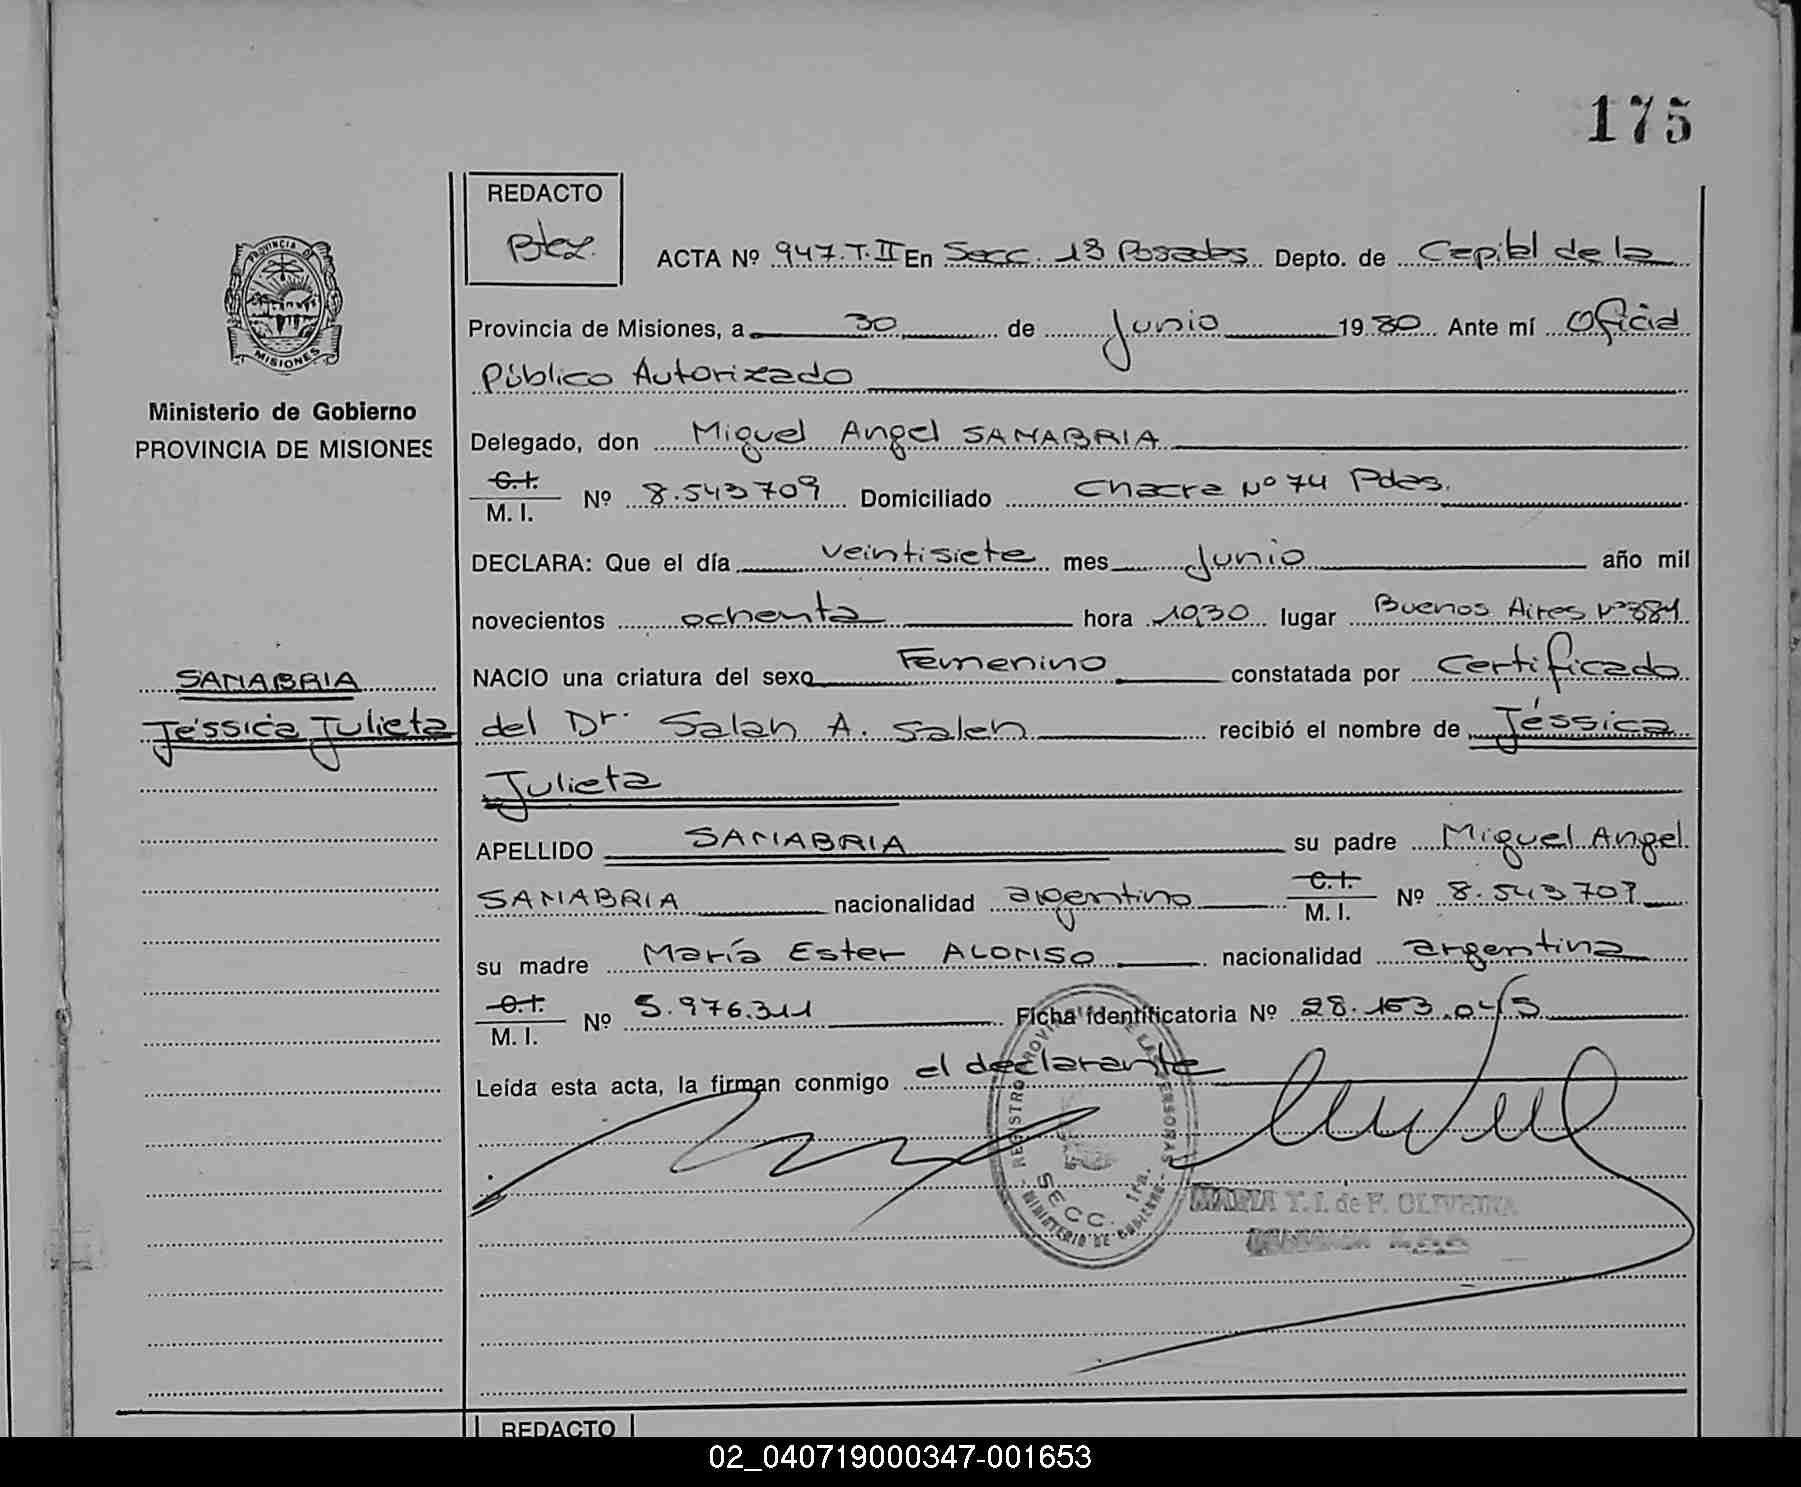 175
REDACTO
ACTA Nº 947.T.II En Secc. 1ª Posadas Depto. de Capital de la
PROVINCIA DE
MISIONES
Provincia de Misiones, a 30 de Junio 1980 Ante mí Oficial
Público Autorizado
Ministerio de Gobierno
PROVINCIA DE MISIONES
Delegado, don Miguel Angel SANABRIA
C.I.
M. I. Nº 8.543709 Domiciliado Chacra Nº 74 Pdas.
DECLARA: Que el día veintisiete mes Junio año mil
novecientos ochenta hora 10,30 lugar Buenos Aires Nº
SANABRIA
Jéssica Julieta
NACIO una criatura del sexo Femenino constatada por Certificado
del Dr. Salah A. Saleh recibió el nombre de Jéssica
Julieta
APELLIDO SANABRIA su padre Miguel Angel
SANABRIA nacionalidad argentino C.I.
M. I. Nº 8.543.709
su madre María Ester ALONSO nacionalidad argentina
C.I.
M. I. Nº 5.976.311 Ficha identificatoria Nº 28.163.045
Leída esta acta, la firman conmigo el declarante
REGISTRO PROVINCIAL DE LAS PERSONAS
SECC. 1ra.
MINISTERIO DE GOBIERNO
MARIA Y. I. de F. OLIVEIRA
REDACTO
02_040719000347-001653